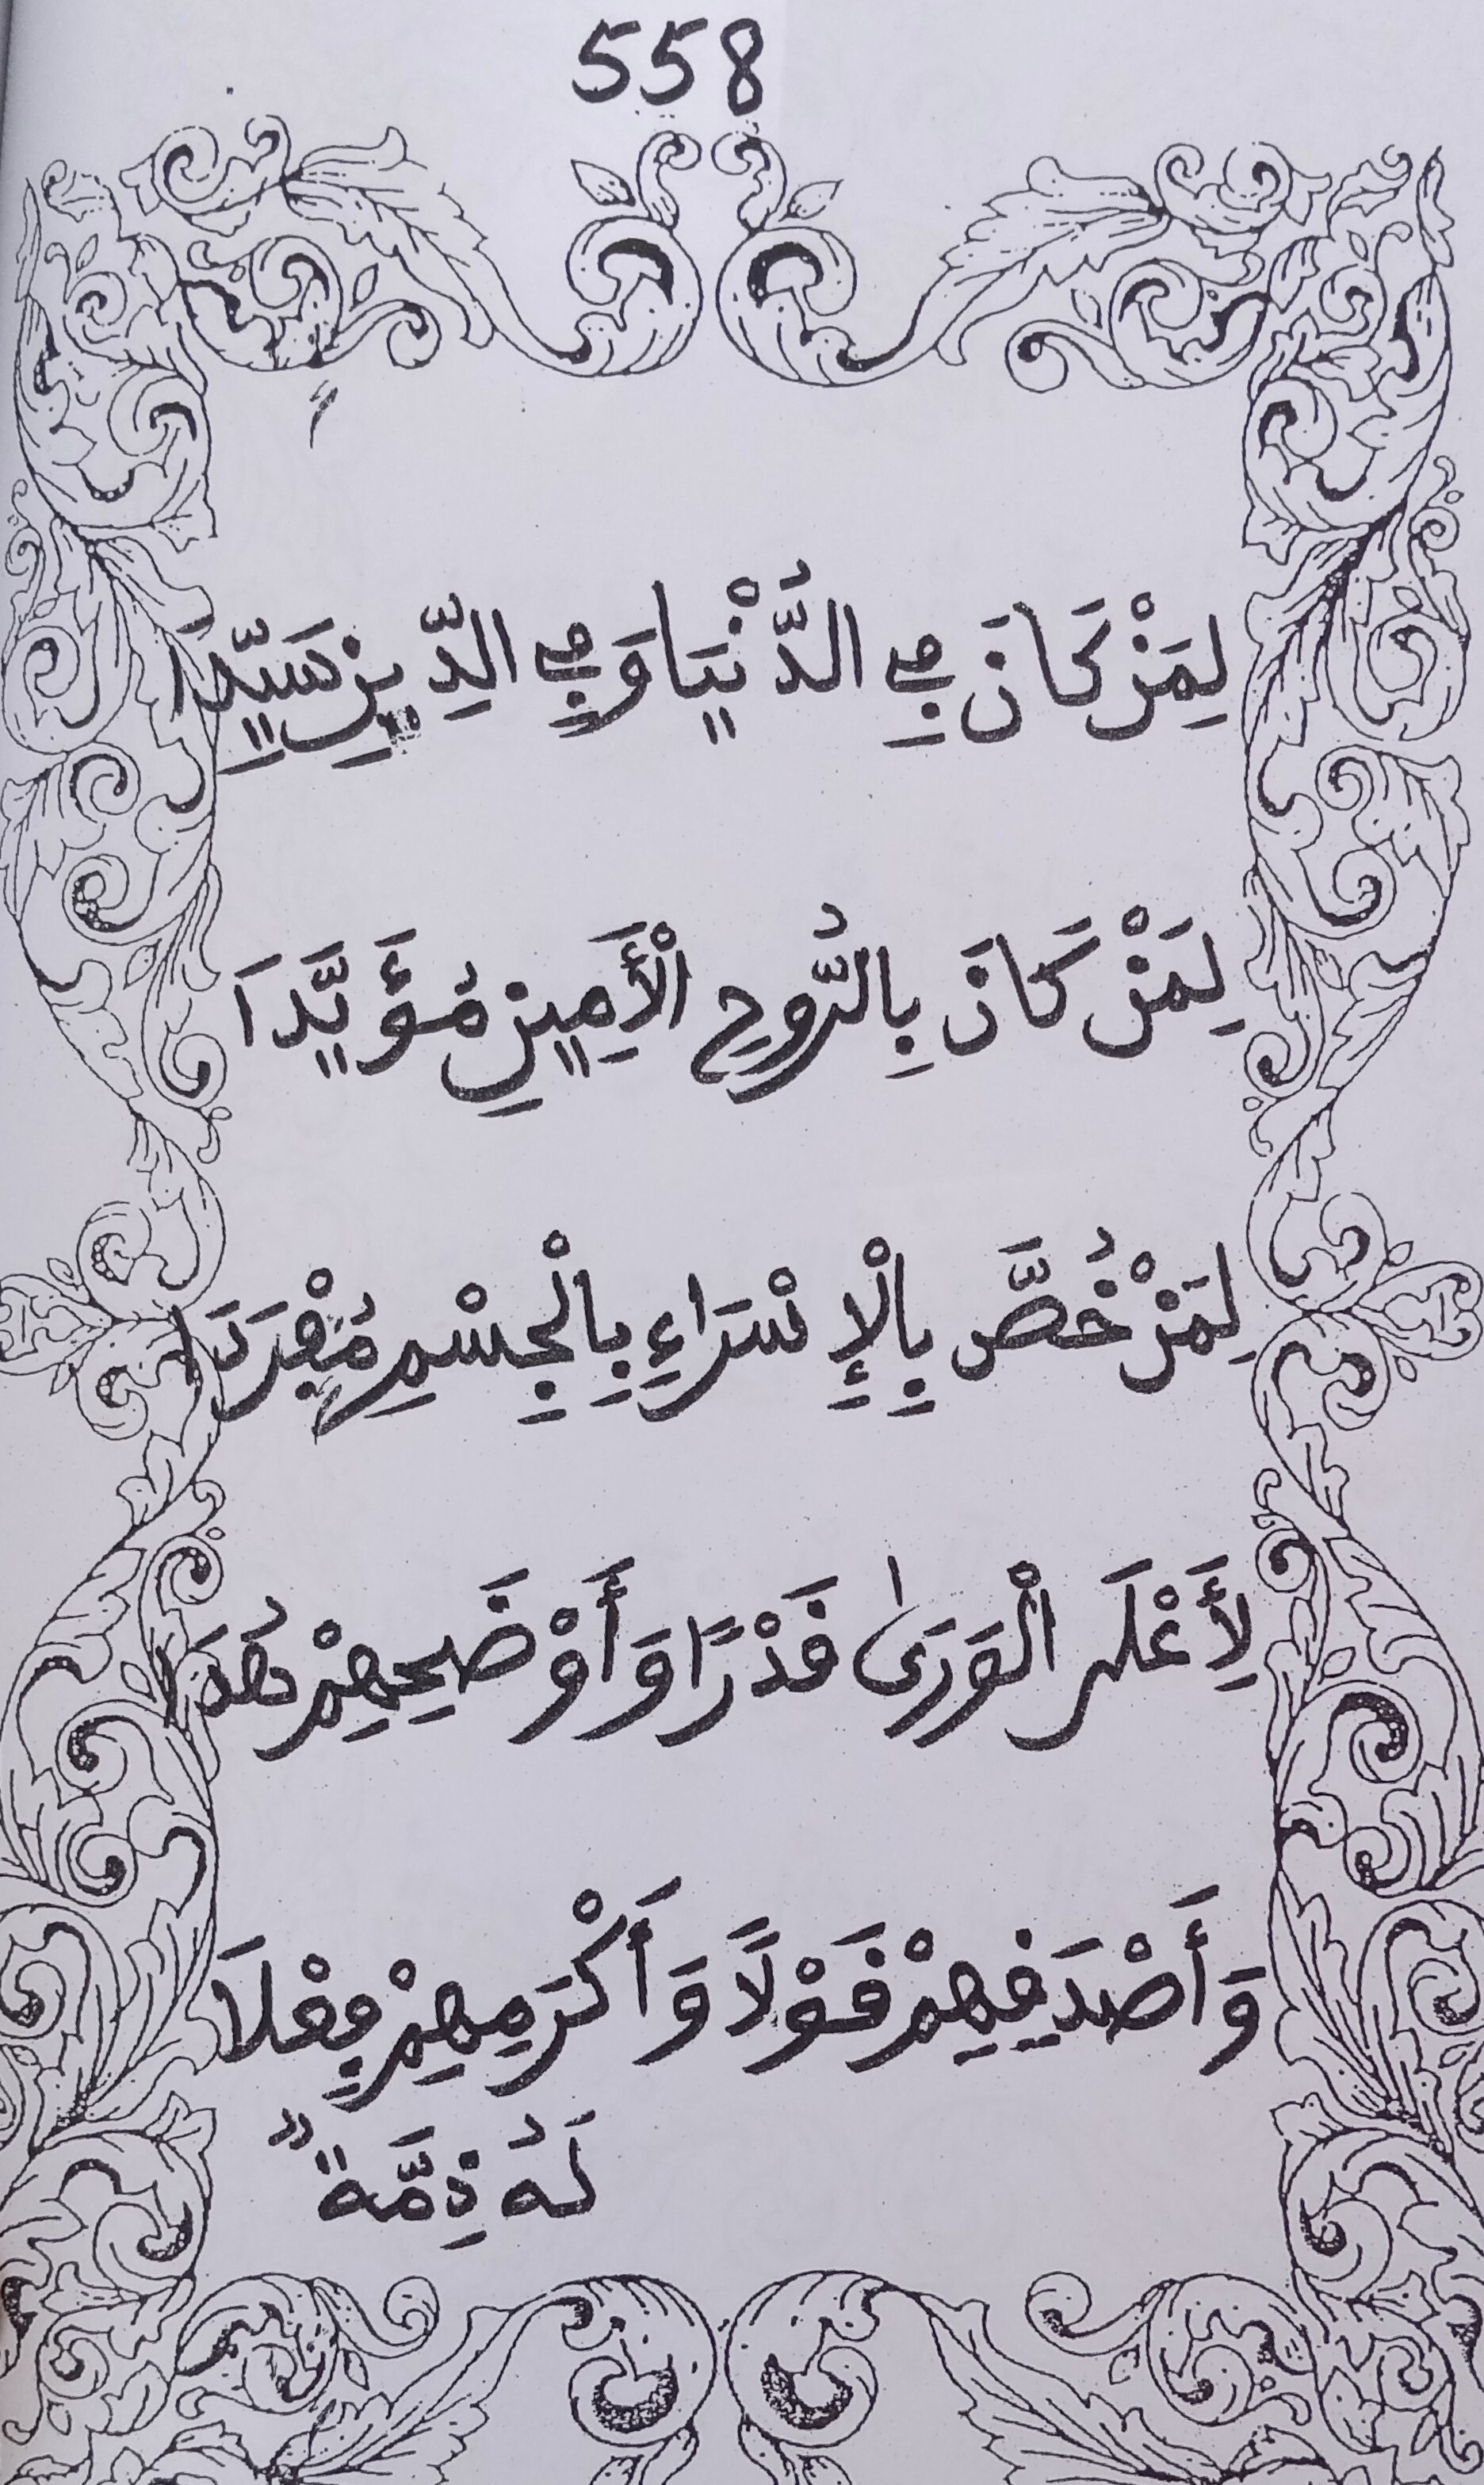 558
لِمَنْ كَانَ فِي الدُّنْيَا وَفِي الدِّينِ سَيِّدَا
لِمَنْ كَانَ بِالرُّوحِ الْأَمِينِ مُؤَيَّدَا
لِمَنْ خُصَّ بِالْإِسْرَاءِ بِالْجِسْمِ مُفْرَدَا
لِأَعْلَى الْوَرَىٰ قَدْرًا وَأَوْضَحِهِمْ هُدَا
وَأَصْدَقِهِمْ قَوْلًا وَأَكْرَمِهِمْ فِعْلَا
لَهُ ذِمَّةٌ